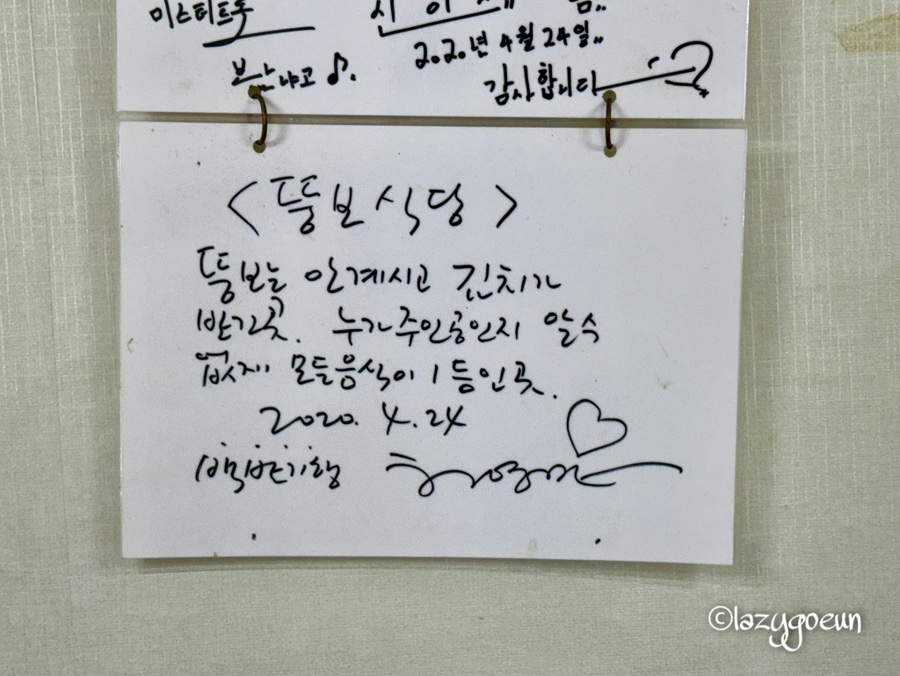 미스터트롯
2020년 4월 24일..
감사합니다
<뚱보식당>
뚱보는 안계시고 김치가
반긴곳. 누가 주인공인지 알수
없게 모든음식이 1등인곳.
2020. 4. 24
백반기행
©lazygoeun